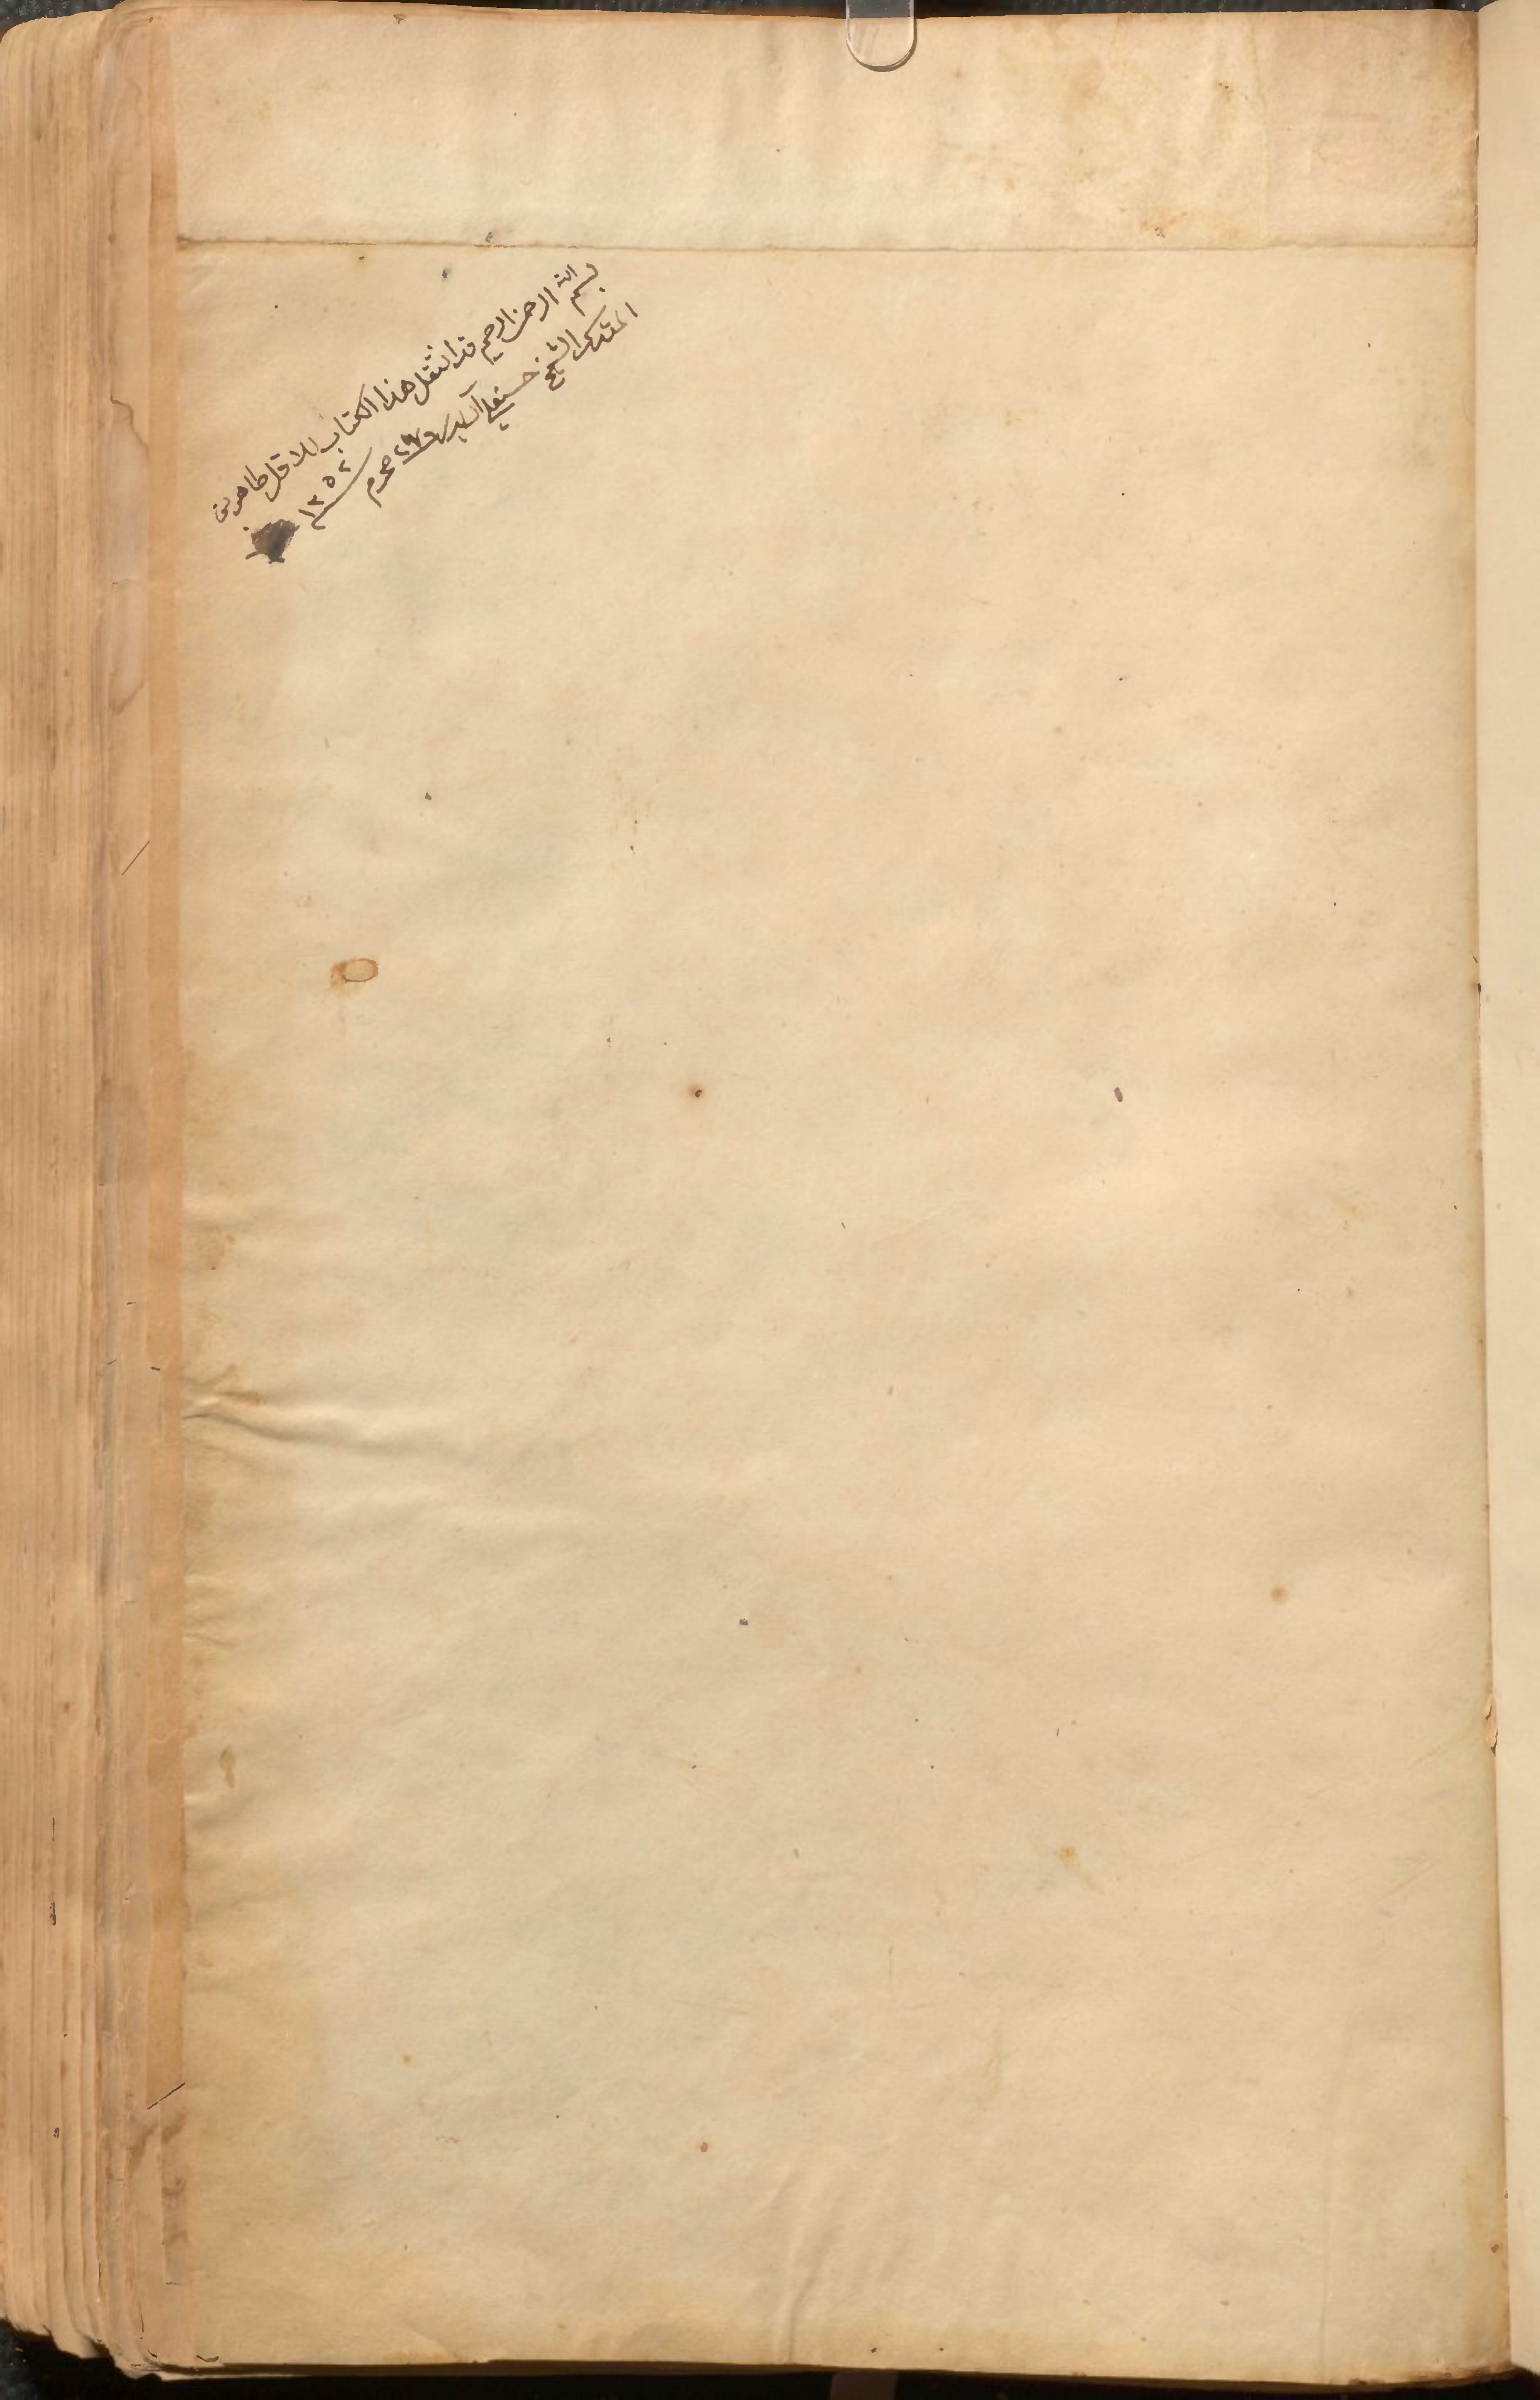 بسم الله الرحمن الرحيم قد انتقل هذا الكتاب للاقل طاهر بن
المقدس الشيخ حسنعلي آل بدر محرم
١٣٥٢